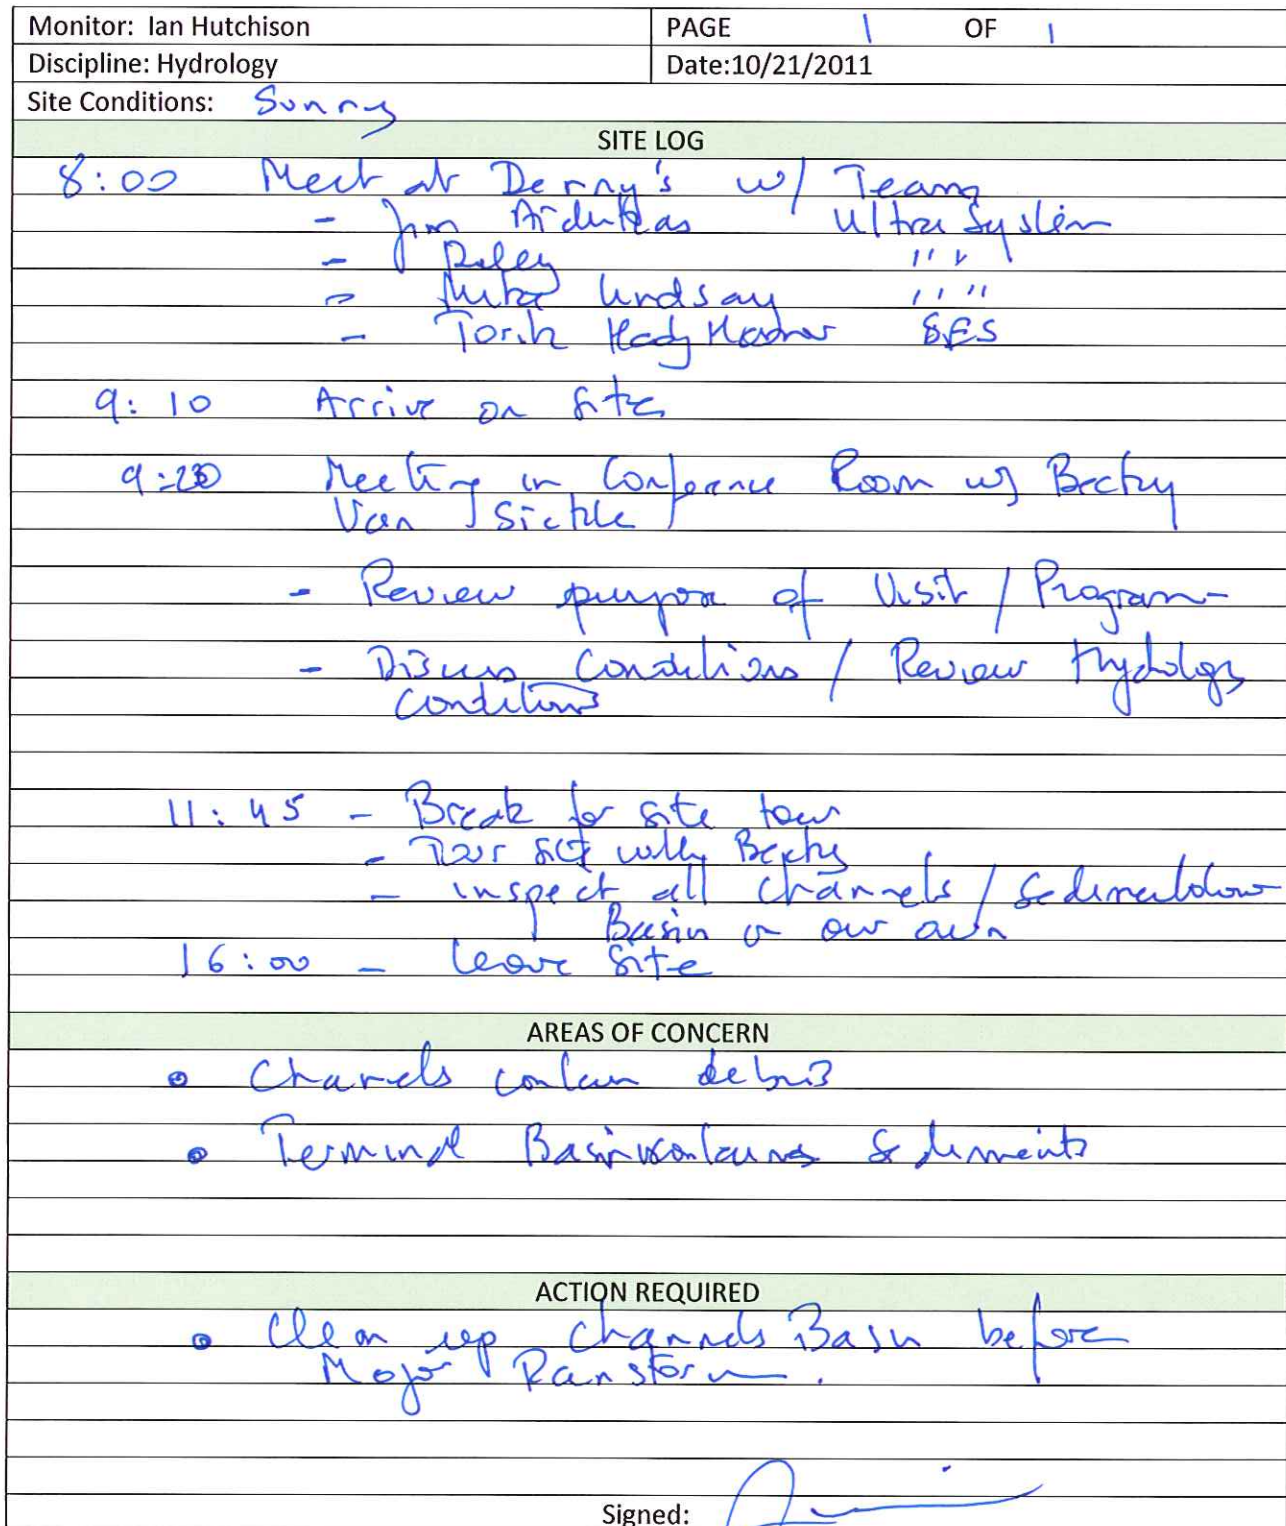 Monitor: Ian Hutchison PAGE 1 OF 1
Discipline: Hydrology Date:10/21/2011
Site Conditions: Sunny
SITE LOG
8:00 Meet at Denny's w/ Team
- Jim Ultra System
- " "
- Mike Lindsay " "
- SES
9:10 Arrive on Site
9:20 Meeting in Conference Room w/ Becky
Van Sickle
- Review purpose of Visit / Program
- Discuss Conditions / Review Hydology
Conditions
11:45 - Break for site tour
- Tour site with Becky
- inspect all channels /
Basin on our own
16:00 - leave Site
AREAS OF CONCERN
Channels contain debris
Terminal Basin contains Sediments
ACTION REQUIRED
Clean up channels Basin before
Major Rainstorm.
Signed: